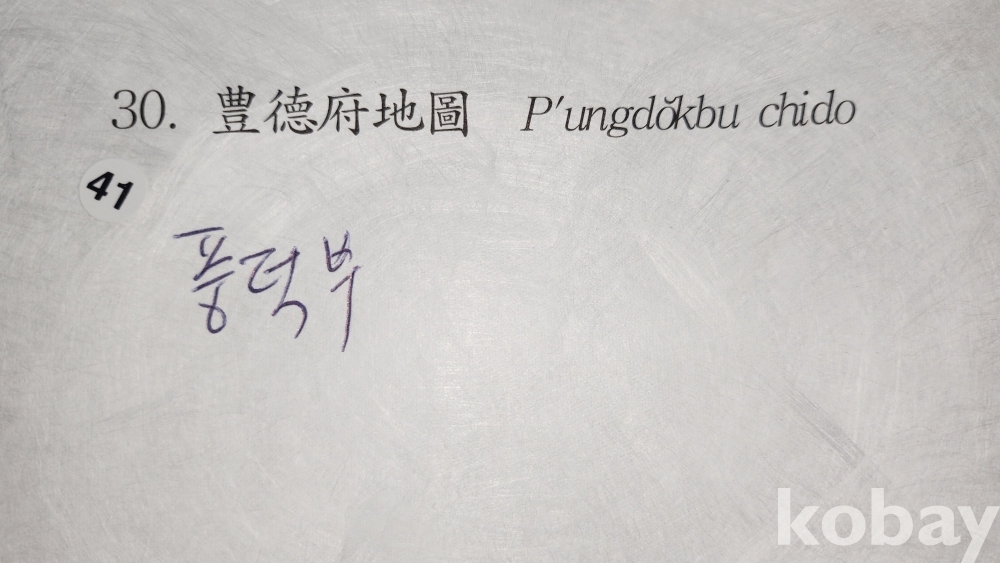 30. 豊德府地圖 P'ungdŏkbu chido
41
풍덕부
kobay